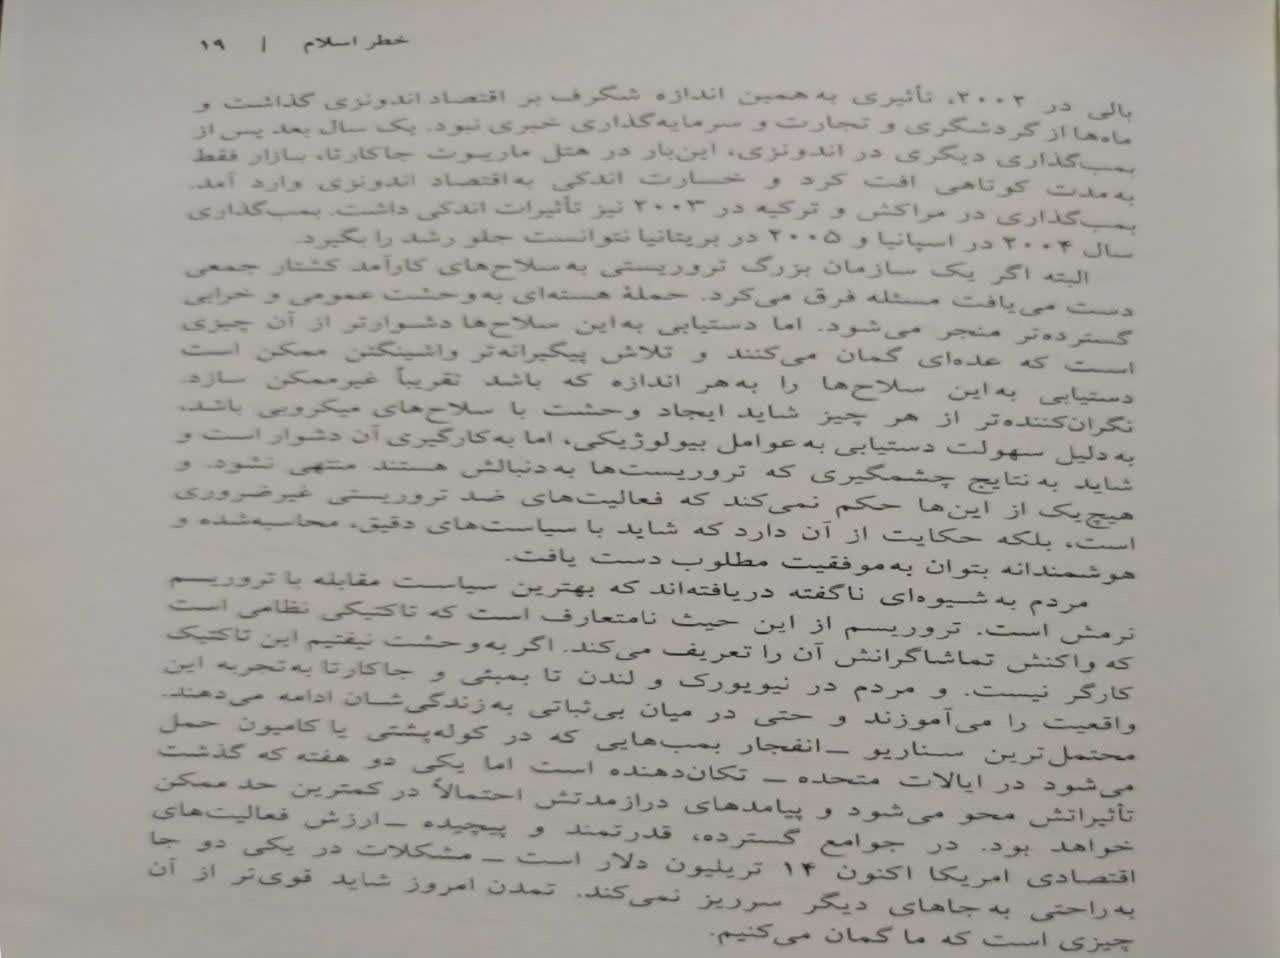 خطر اسلام | ۱۹
بالی در ۲۰۰۲، تأثیری به‌همین اندازه شگرف بر اقتصاد اندونزی گذاشت و
ماه‌ها از گردشگری و تجارت و سرمایه‌گذاری خبری نبود. یک سال بعد پس از
بمب‌گذاری دیگری در اندونزی، این‌بار در هتل ماریوت جاکارتا، بازار فقط
به‌مدت کوتاهی افت کرد و خسارت اندکی به‌اقتصاد اندونزی وارد آمد.
بمب‌گذاری در مراکش و ترکیه در ۲۰۰۳ نیز تأثیرات اندکی داشت. بمب‌گذاری
سال ۲۰۰۴ در اسپانیا و ۲۰۰۵ در بریتانیا نتوانست جلو رشد را بگیرد.
البته اگر یک سازمان بزرگ تروریستی به‌سلاح‌های کارآمد کشتار جمعی
دست می‌یافت مسئله فرق می‌کرد. حملهٔ هسته‌ای به‌وحشت عمومی و خرابی
گسترده‌تر منجر می‌شود. اما دستیابی به‌این سلاح‌ها دشوارتر از آن چیزی
است که عده‌ای گمان می‌کنند و تلاش پیگیرانه‌تر واشینگتن ممکن است
دستیابی به‌این سلاح‌ها را به‌هر اندازه که باشد تقریباً غیرممکن سازد.
نگران‌کننده‌تر از هر چیز شاید ایجاد وحشت با سلاح‌های میکروبی باشد،
به‌دلیل سهولت دستیابی به‌عوامل بیولوژیکی، اما به‌کارگیری آن دشوار است و
شاید به‌نتایج چشمگیری که تروریست‌ها به‌دنبالش هستند منتهی نشود. و
هیچ‌یک از این‌ها حکم نمی‌کند که فعالیت‌های ضد تروریستی غیرضروری
است، بلکه حکایت از آن دارد که شاید با سیاست‌های دقیق، محاسبه‌شده و
هوشمندانه بتوان به‌موفقیت مطلوب دست یافت.
مردم به‌شیوه‌ای ناگفته دریافته‌اند که بهترین سیاست مقابله با تروریسم
نرمش است. تروریسم از این حیث نامتعارف است که تاکتیکی نظامی است
که واکنش تماشاگرانش آن را تعریف می‌کند. اگر به‌وحشت نیفتیم این تاکتیک
کارگر نیست. و مردم در نیویورک و لندن تا بمبئی و جاکارتا به‌تجربه این
واقعیت را می‌آموزند و حتی در میان بی‌ثباتی به‌زندگی‌شان ادامه می‌دهند.
محتمل‌ترین سناریو ــ انفجار بمب‌هایی که در کوله‌پشتی یا کامیون حمل
می‌شود در ایالات متحده ــ تکان‌دهنده است اما یکی دو هفته که گذشت
تأثیراتش محو می‌شود و پیامدهای درازمدتش احتمالاً در کمترین حد ممکن
خواهد بود. در جوامع گسترده، قدرتمند و پیچیده ــ ارزش فعالیت‌های
اقتصادی امریکا اکنون ۱۴ تریلیون دلار است ــ مشکلات در یکی دو جا
به‌راحتی به‌جاهای دیگر سرریز نمی‌کند. تمدن امروز شاید قوی‌تر از آن
چیزی است که ما گمان می‌کنیم.